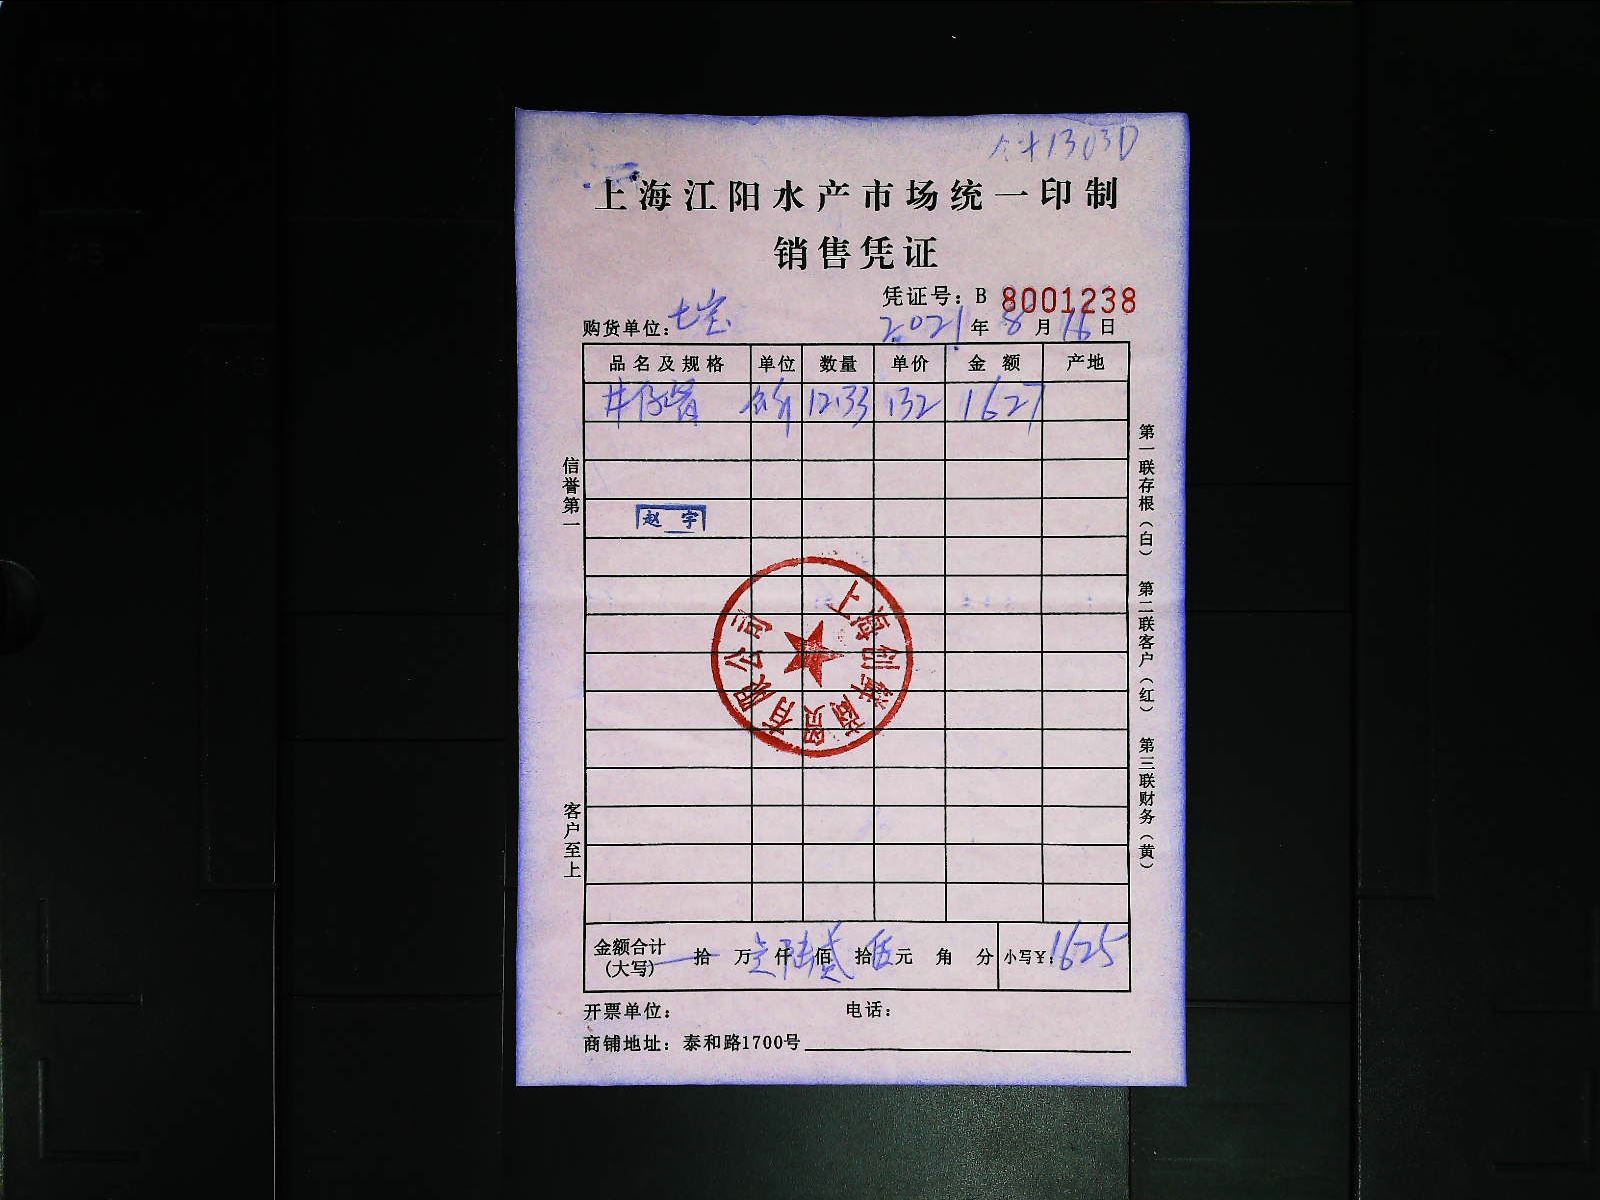 1303D
上海江阳水产市场统一印制
销售凭证
凭证号：B 8001238
购货单位：七宝
2021年8月16日
品名及规格 单位 数量 单价 金额 产地
12.33 132 1627
赵宇
上海创鲜商贸有限公司
信誉第一
客户至上
第一联存根（白） 第二联客户（红） 第三联财务（黄）
金额合计 拾 万 壹仟陆佰贰拾伍元 角 分 小写¥：1625
(大写)
开票单位： 电话：
商铺地址：泰和路1700号